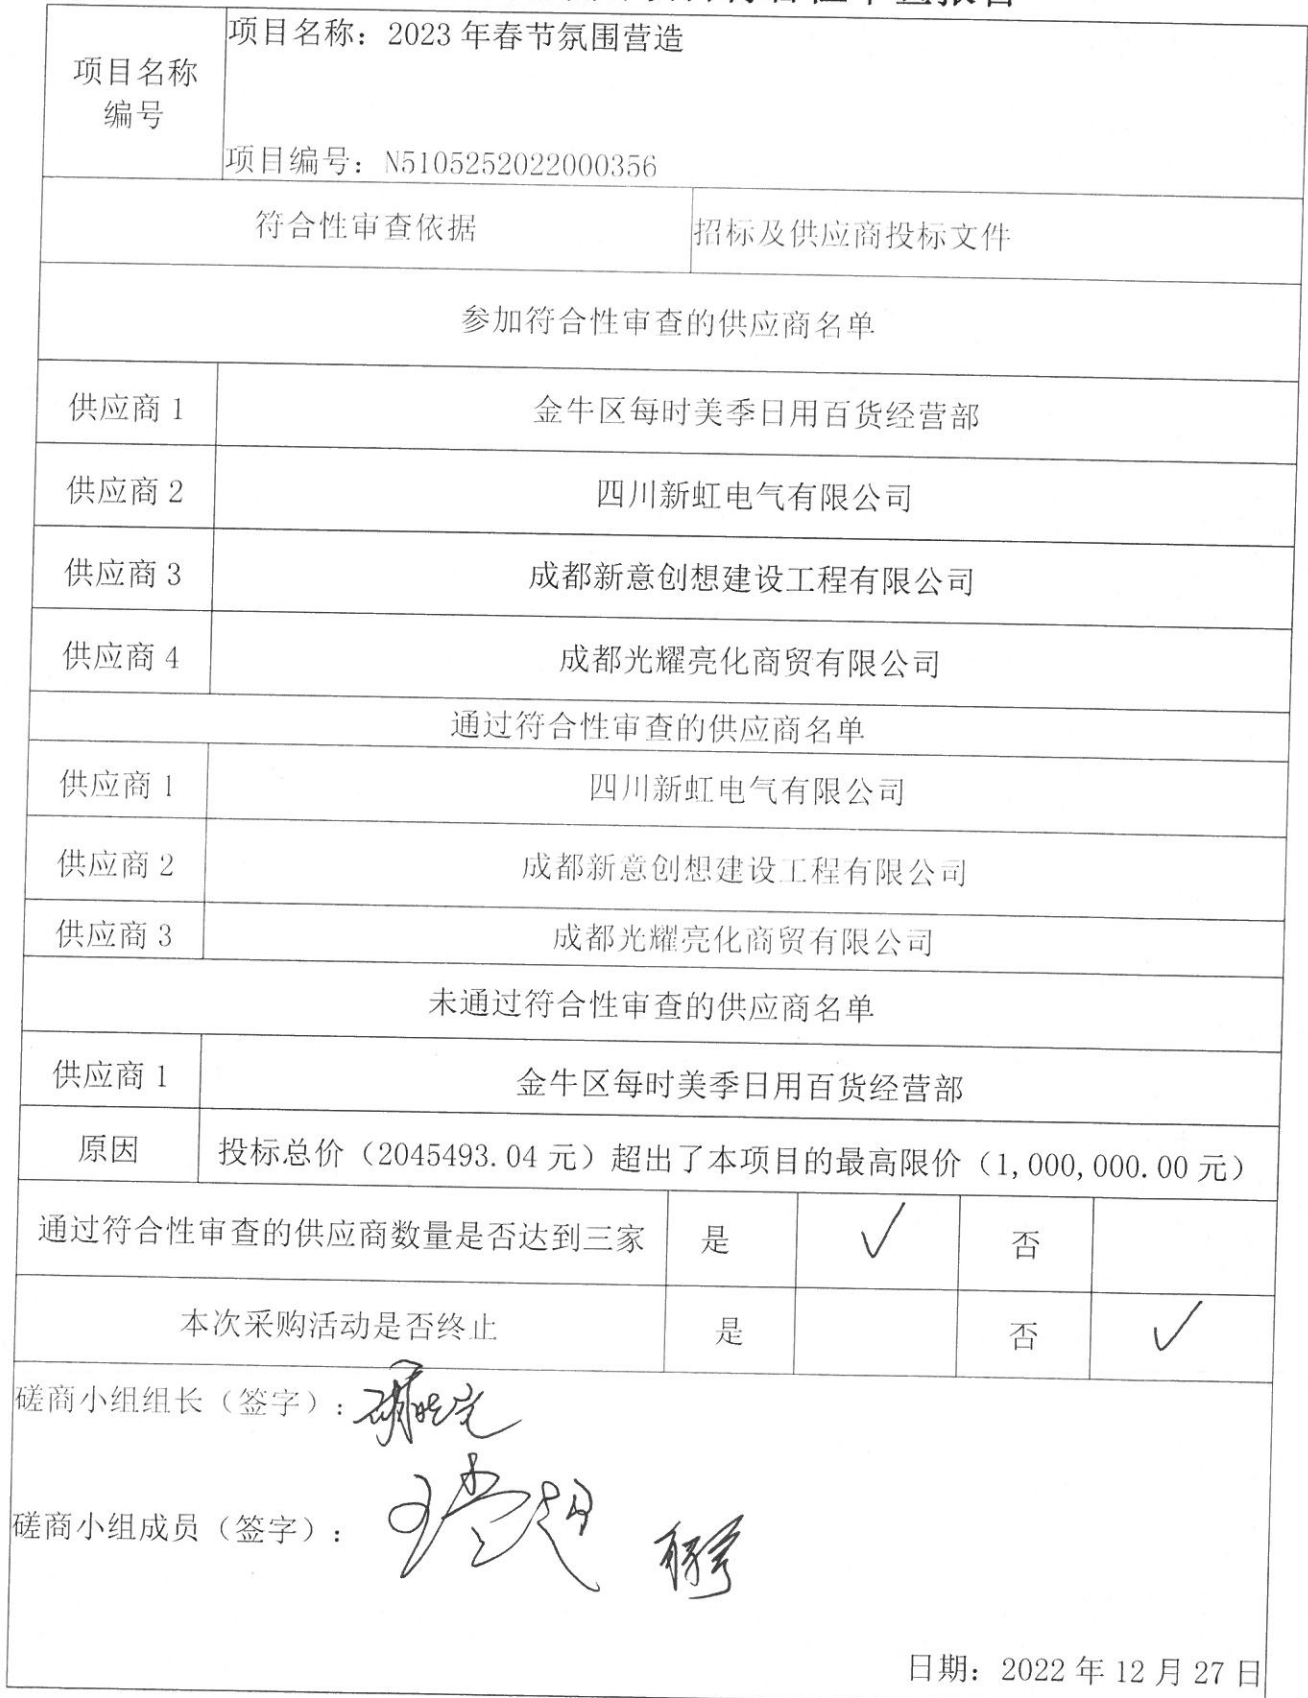 项目名称
编号
项目名称：2023 年春节氛围营造
项目编号：N5105252022000356
符合性审查依据
招标及供应商投标文件
参加符合性审查的供应商名单
供应商 1
金牛区每时美季日用百货经营部
供应商 2
四川新虹电气有限公司
供应商 3
成都新意创想建设工程有限公司
供应商 4
成都光耀亮化商贸有限公司
通过符合性审查的供应商名单
供应商 1
四川新虹电气有限公司
供应商 2
成都新意创想建设工程有限公司
供应商 3
成都光耀亮化商贸有限公司
未通过符合性审查的供应商名单
供应商 1
金牛区每时美季日用百货经营部
原因
投标总价（2045493.04 元）超出了本项目的最高限价（1,000,000.00 元）
通过符合性审查的供应商数量是否达到三家
是
√
否
本次采购活动是否终止
是
否
√
磋商小组组长（签字）：
磋商小组成员（签字）：
日期：2022 年 12 月 27 日